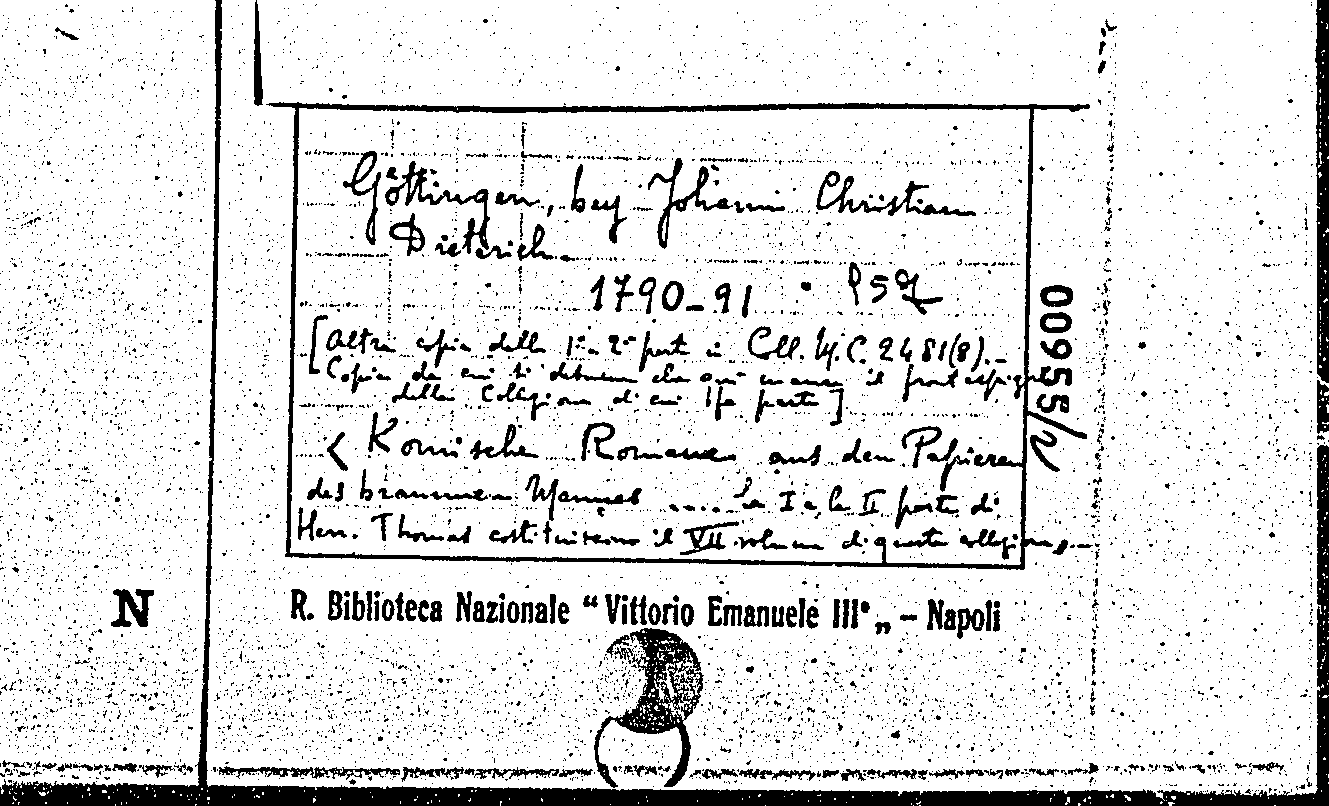 Göttingen, bey Johann Christian
Dieterich.
1790-91
[Altra copia della 1ª e 2ª parte in Coll. M.C. 2481(8).-
Copia da cui si desume che qui manca il frontespizio
della Collezione di cui fa parte]
< Komische Romanen aus den Papieren
des braunen Mannes .... la I e la II parte di
Herr. Thomas costituiscono il VII volume di questa collezione.-
00955/2
N
R. Biblioteca Nazionale “Vittorio Emanuele III„ – Napoli